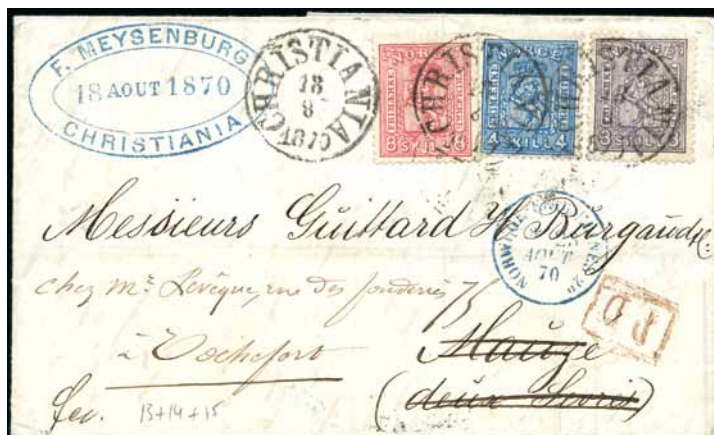 F. MEYSENBURG
18 AOUT 1870
CHRISTIANIA
CHRISTIANIA
18
8
1870
NORGE
8 SKILL 8
NORGE
4 SKILL 4
3 SKILL 3
CHRISTIANIA
CHRISTIANIA
Messieurs Guittard H Burgaud
AOUT
70
PD
chez Mr Levêque, rue des fonderies
à Rochefort
Mauzé
(deux Sevres)
13+14+15